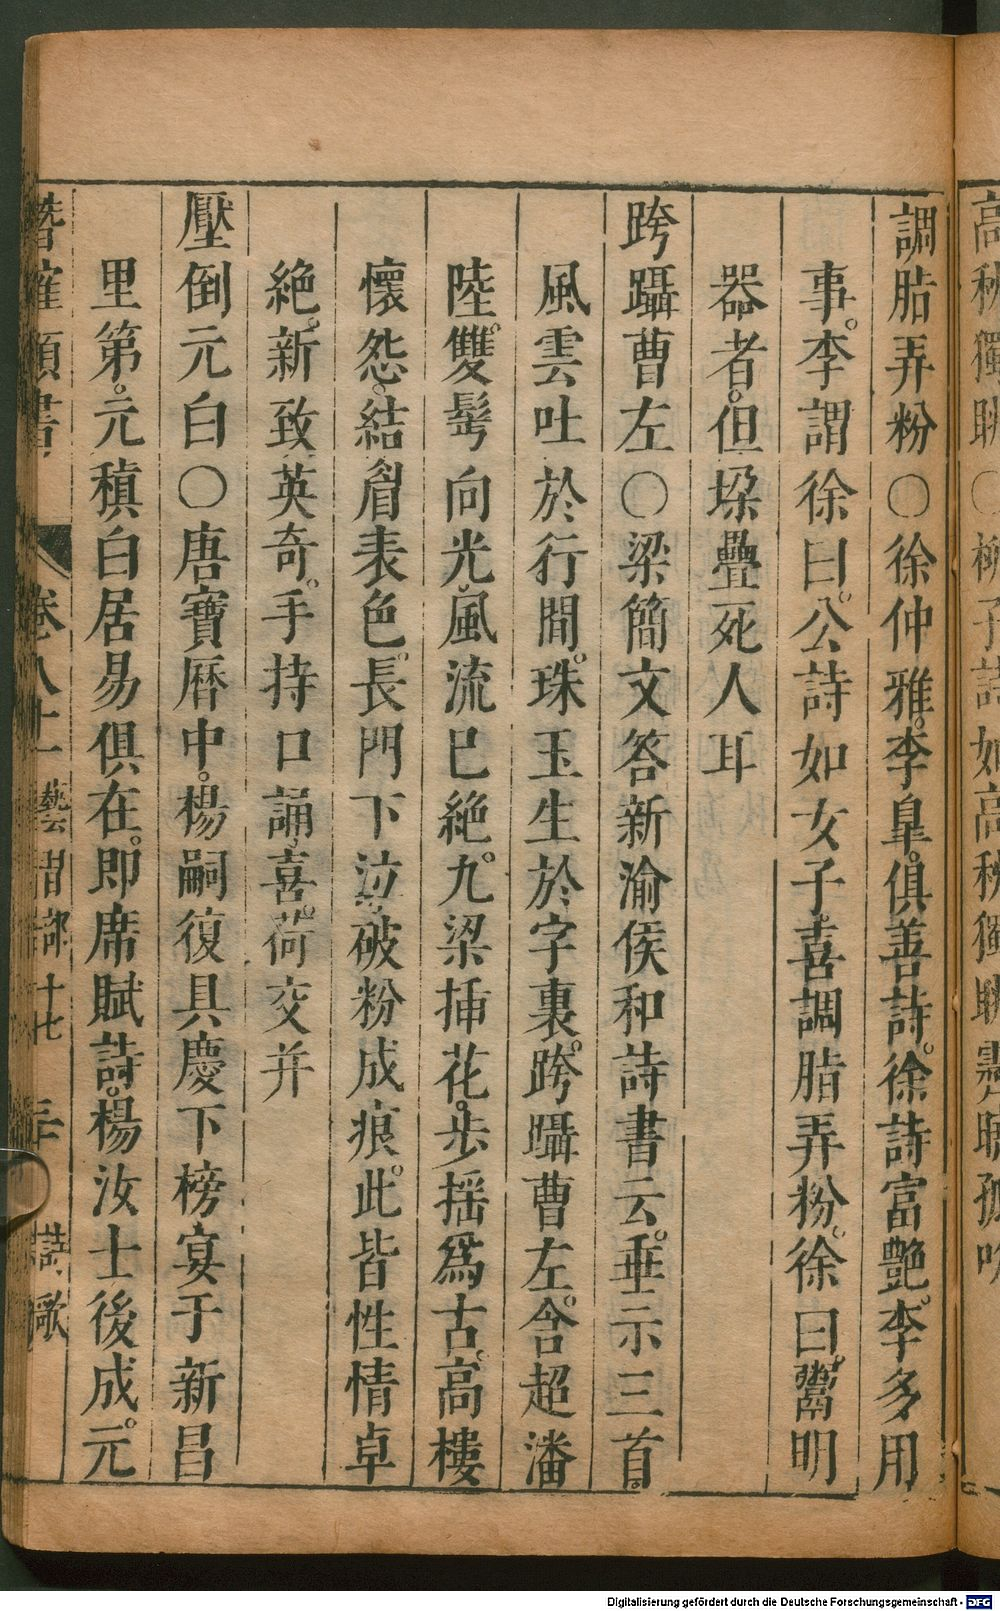 調脂弄粉○徐仲雅。李皐。俱善詩。徐詩富艶。李多用
事。李謂徐曰。公詩如女子。喜調脂弄粉。徐曰。鬻明
器者。但垜疊死人耳
跨躡曹左○梁簡文答新渝侯和詩書云。垂示三首。
風雲吐於行間。珠玉生於字裏。跨躡曹左。含超潘
陸。雙鬂向光。風流已絶。九梁揷花。步搖爲古。高樓
懷怨。結眉表色。長門下泣。破粉成痕。此皆性情卓
絶。新致英奇。手持口誦。喜荷交并
壓倒元白○唐寶曆中。楊嗣復具慶下榜宴于新昌
里第。元稹白居易俱在。即席賦詩。楊汝士後成。元
潛確類書 卷八十一 藝習部十七 三 詩歌
Digitalisierung gefördert durch die Deutsche Forschungsgemeinschaft - DFG